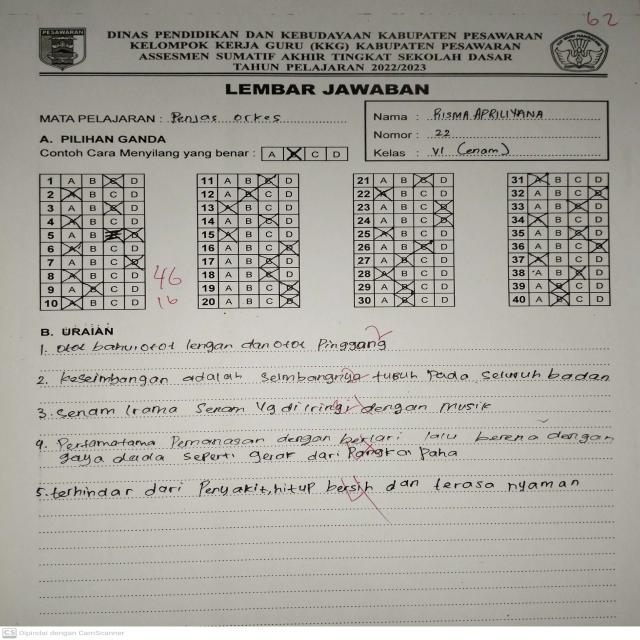 62
PESAWARAN
DINAS PENDIDIKAN DAN KEBUDAYAAN KABUPATEN PESAWARAN
KELOMPOK KERJA GURU (KKG) KABUPATEN PESAWARAN
ASSESMEN SUMATIF AKHIR TINGKAT SEKOLAH DASAR
TAHUN PELAJARAN 2022/2023
LEMBAR JAWABAN
MATA PELAJARAN : Penjas orkes
Nama : RISMA APRILIYANA
Nomor : 22
Kelas : VI (enam)
A. PILIHAN GANDA
Contoh Cara Menyilang yang benar : A B C D
1 A B C D 11 A B C D 21 A B C D 31 A B C D
2 A B C D 12 A B C D 22 A B C D 32 A B C D
3 A B C D 13 A B C D 23 A B C D 33 A B C D
4 A B C D 14 A B C D 24 A B C D 34 A B C D
5 A B C D 15 A B C D 25 A B C D 35 A B C D
6 A B C D 16 A B C D 26 A B C D 36 A B C D
7 A B C D 17 A B C D 27 A B C D 37 A B C D
8 A B C D 18 A B C D 28 A B C D 38 A B C D
9 A B C D 19 A B C D 29 A B C D 39 A B C D
10 A B C D 20 A B C D 30 A B C D 40 A B C D
46
16
B. URAIAN
1. otot bahu, otot lengan dan otot Pinggang
2. keseimbangan adalah seimbangnya tubuh Pada seluruh badan
3. senam Irama senam yg diiringi dengan musik
4. Pertamatama Pemanasan dengan berlari lalu berena dengan
gaya dada seperti gerak dari Pangkal Paha
5. terhindar dari Penyakit, hitup bersih dan terasa nyaman
CS Dipindai dengan CamScanner